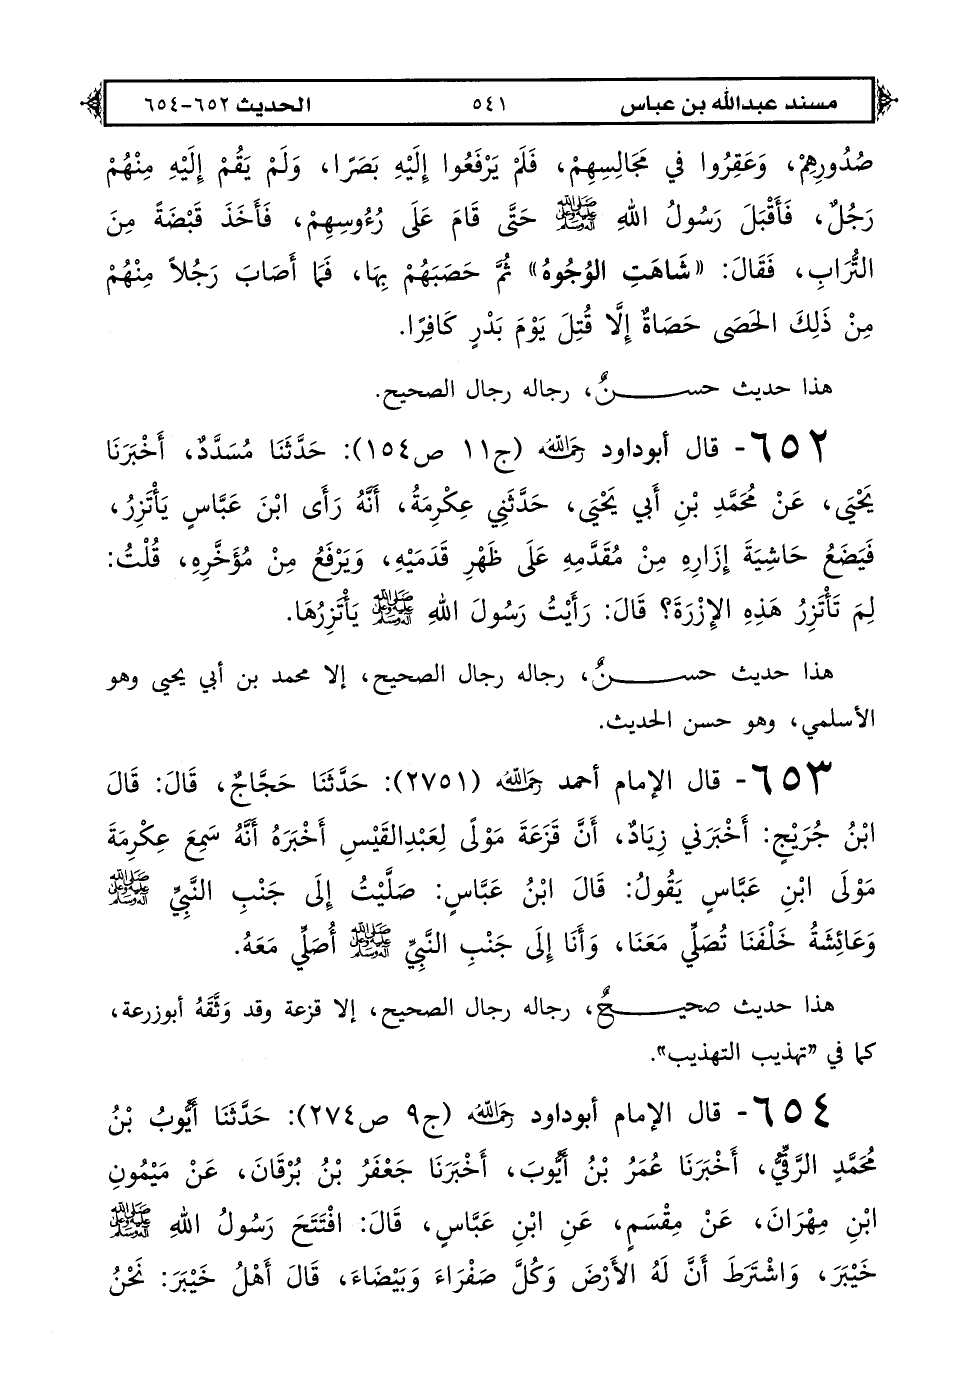 مسند عبدالله بن عباس ٥٤١ الحديث ٦٥٢-٦٥٤
صُدُورِهِمْ، وَعَقِرُوا فِي مَجَالِسِهِمْ، فَلَمْ يَرْفَعُوا إِلَيْهِ بَصَرًا، وَلَمْ يَقُمْ إِلَيْهِ مِنْهُمْ
رَجُلٌ، فَأَقْبَلَ رَسُولُ اللهِ ﷺ حَتَّى قَامَ عَلَى رُءُوسِهِمْ، فَأَخَذَ قَبْضَةً مِنَ
التُّرَابِ، فَقَالَ: «شَاهَتِ الوُجُوهُ» ثُمَّ حَصَبَهُمْ بِهَا، فَمَا أَصَابَ رَجُلاً مِنْهُمْ
مِنْ ذَلِكَ الحَصَى حَصَاةٌ إِلَّا قُتِلَ يَوْمَ بَدْرٍ كَافِرًا.
هذا حديث حســـــنٌ، رجاله رجال الصحيح.
٦٥٢- قال أبوداود رحمه الله (ج١١ ص١٥٤): حَدَّثَنَا مُسَدَّدٌ، أَخْبَرَنَا
يَحْيَى، عَنْ مُحَمَّدِ بْنِ أَبِي يَحْيَى، حَدَّثَنِي عِكْرِمَةُ، أَنَّهُ رَأَى ابْنَ عَبَّاسٍ يَأْتَزِرُ،
فَيَضَعُ حَاشِيَةَ إِزَارِهِ مِنْ مُقَدَّمِهِ عَلَى ظَهْرِ قَدَمَيْهِ، وَيَرْفَعُ مِنْ مُؤَخَّرِهِ، قُلْتُ:
لِمَ تَأْتَزِرُ هَذِهِ الإِزْرَةَ؟ قَالَ: رَأَيْتُ رَسُولَ اللهِ ﷺ يَأْتَزِرُهَا.
هذا حديث حســـــنٌ، رجاله رجال الصحيح، إلا محمد بن أبي يحيى وهو
الأسلمي، وهو حسن الحديث.
٦٥٣- قال الإمام أحمد رحمه الله (٢٧٥١): حَدَّثَنَا حَجَّاجٌ، قَالَ: قَالَ
ابْنُ جُرَيْجٍ: أَخْبَرَنِي زِيَادٌ، أَنَّ قَزَعَةَ مَوْلًى لِعَبْدِالقَيْسِ أَخْبَرَهُ أَنَّهُ سَمِعَ عِكْرِمَةَ
مَوْلَى ابْنِ عَبَّاسٍ يَقُولُ: قَالَ ابْنُ عَبَّاسٍ: صَلَّيْتُ إِلَى جَنْبِ النَّبِيِّ ﷺ
وَعَائِشَةُ خَلْفَنَا تُصَلِّي مَعَنَا، وَأَنَا إِلَى جَنْبِ النَّبِيِّ ﷺ أُصَلِّي مَعَهُ.
هذا حديث صحيـــــحٌ، رجاله رجال الصحيح، إلا قزعة وقد وَثَّقَهُ أبوزرعة،
كما في «تهذيب التهذيب».
٦٥٤- قال الإمام أبوداود رحمه الله (ج٩ ص٢٧٤): حَدَّثَنَا أَيُّوبُ بْنُ
مُحَمَّدٍ الرَّقِّيُّ، أَخْبَرَنَا عُمَرُ بْنُ أَيُّوبَ، أَخْبَرَنَا جَعْفَرُ بْنُ بُرْقَانَ، عَنْ مَيْمُونِ
ابْنِ مِهْرَانَ، عَنْ مِقْسَمٍ، عَنِ ابْنِ عَبَّاسٍ، قَالَ: افْتَتَحَ رَسُولُ اللهِ ﷺ
خَيْبَرَ، وَاشْتَرَطَ أَنَّ لَهُ الأَرْضَ وَكُلَّ صَفْرَاءَ وَبَيْضَاءَ، قَالَ أَهْلُ خَيْبَرَ: نَحْنُ